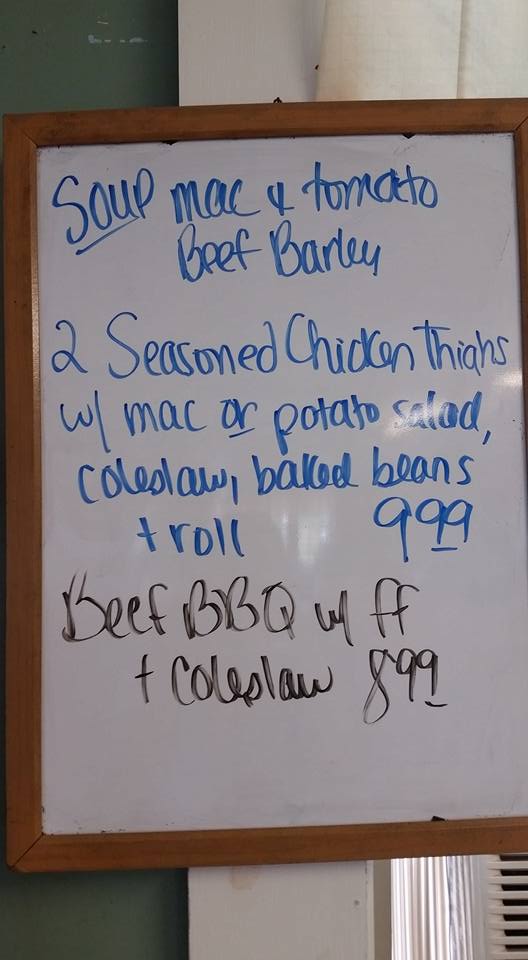 Soup mac & tomato
Beef Barley
2 Seasoned Chicken Thighs
w/ mac or potato salad,
coleslaw, baked beans
+ roll 9 99
Beef BBQ w/ ff
+ coleslaw 8 99